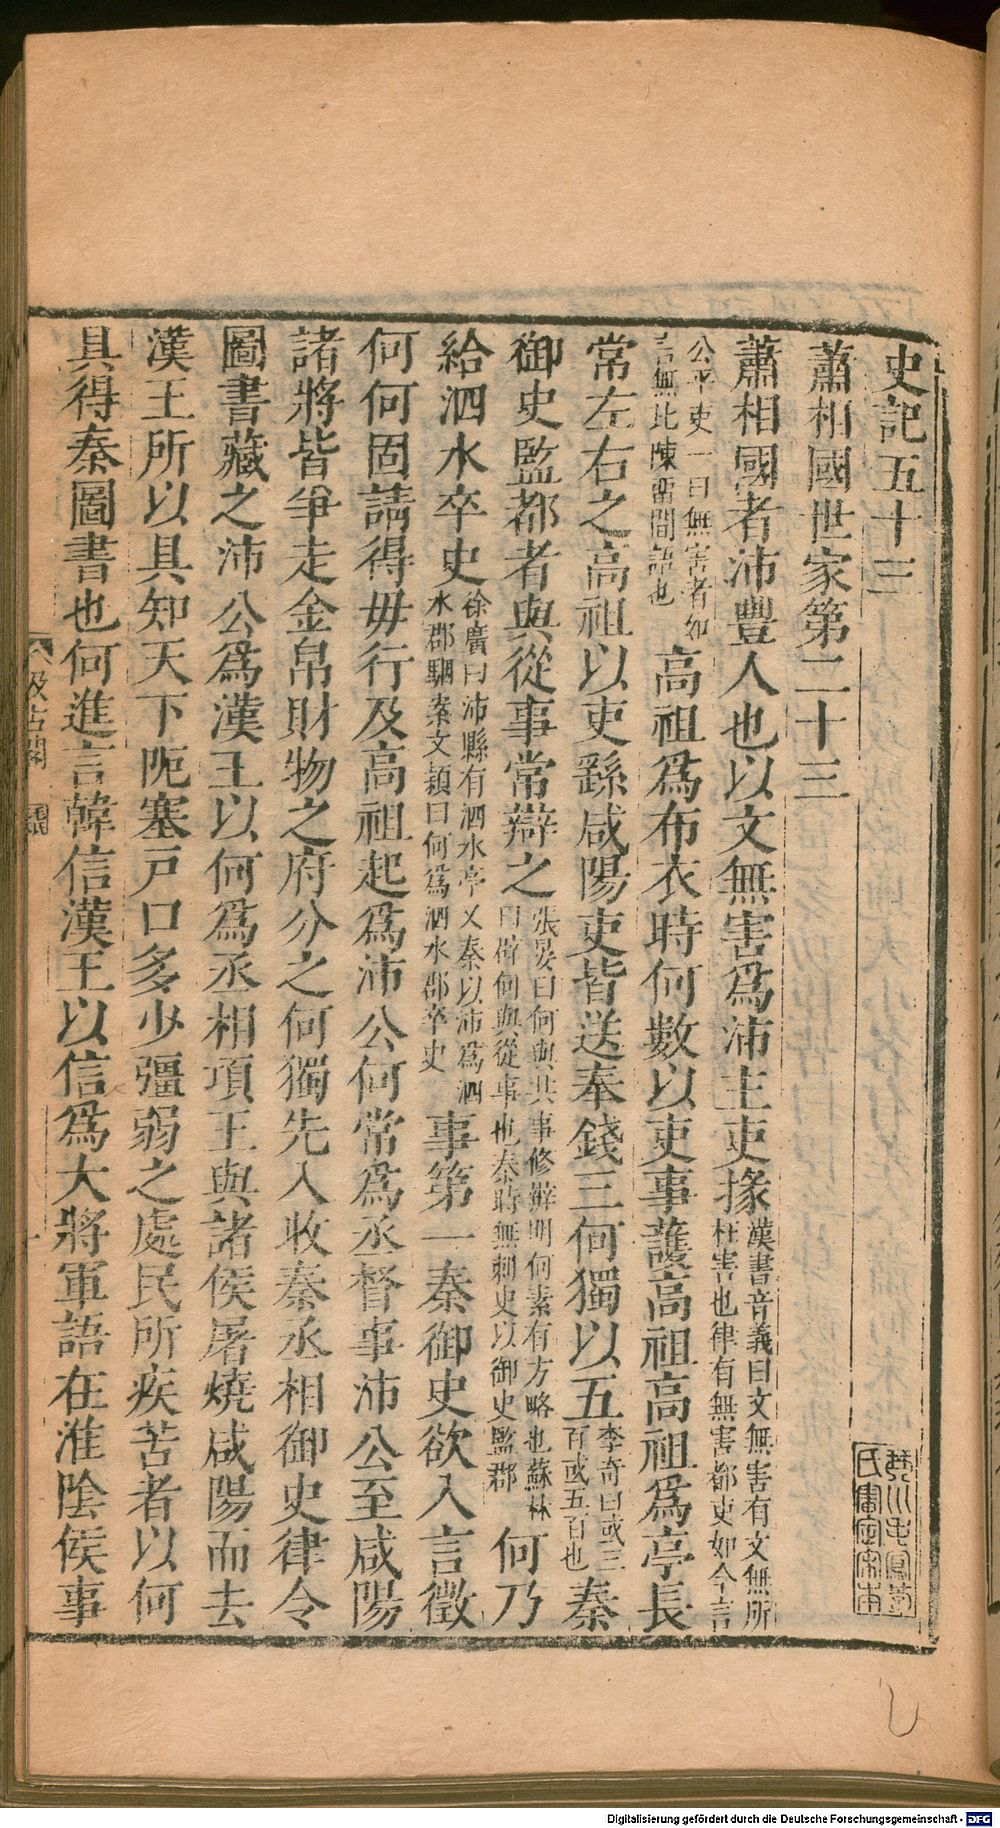 史記五十三
蕭相國世家第二十三
蕭相國者沛豐人也以文無害為沛主吏掾漢書音義曰文無害有文無所枉害也律有無害都吏如今言
公平吏一曰無害者如言無比陳留間語也高祖為布衣時何數以吏事護高祖高祖為亭長
常左右之高祖以吏繇咸陽吏皆送奉錢三何獨以五李奇曰或三百或五百也秦
御史監郡者與從事常辯之張晏曰何與共事修辦明何素有方略也蘇林曰辟何與從事也秦時無刺史以御史監郡何乃
給泗水卒史徐廣曰沛縣有泗水亭又秦以沛為泗水郡駰案文穎曰何為泗水郡卒史事第一秦御史欲入言徵
何何固請得毋行及高祖起為沛公何常為丞督事沛公至咸陽
諸將皆爭走金帛財物之府分之何獨先入收秦丞相御史律令
圖書藏之沛公為漢王以何為丞相項王與諸侯屠燒咸陽而去
漢王所以具知天下阨塞戶口多少彊弱之處民所疾苦者以何
具得秦圖書也何進言韓信漢王以信為大將軍語在淮陰侯事
汲古閣
Digitalisierung gefördert durch die Deutsche Forschungsgemeinschaft - DFG